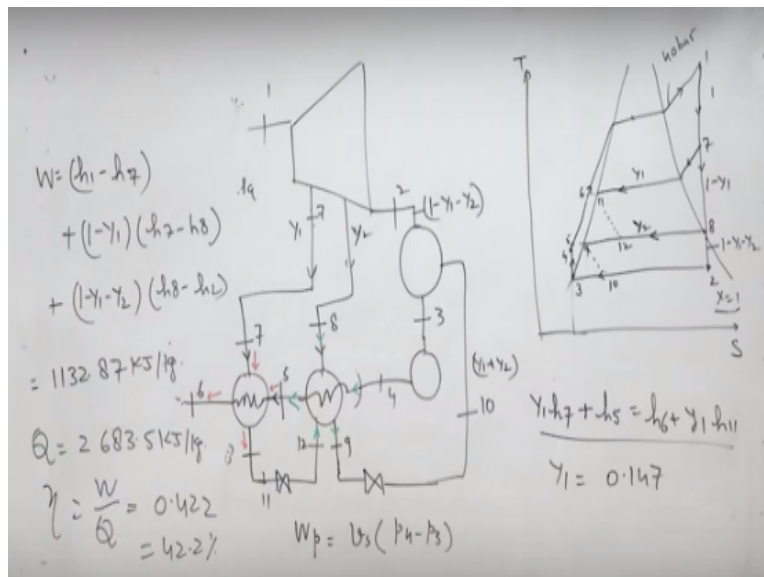 W= (h1-h7)
+(1-Y1)(h7-h8)
+ (1-Y1-Y2)(h8-h2)
= 1132.87 KJ/kg.
Q= 2683.5 KJ/kg
η = W/Q = 0.422
= 42.2%
1
1kg
Y1
7
Y2
2
(1-Y1-Y2)
7
8
3
6
5
4
(Y1+Y2)
10
12
9
11
Wp = v3 (P4-P3)
T
40bar
1
1
7
Y1
1-Y1
6
11
Y2
8
5
4
12
1-Y1-Y2
3
10
2
X=1
S
Y1h7 + h5 = h6 + Y1h11
Y1 = 0.147